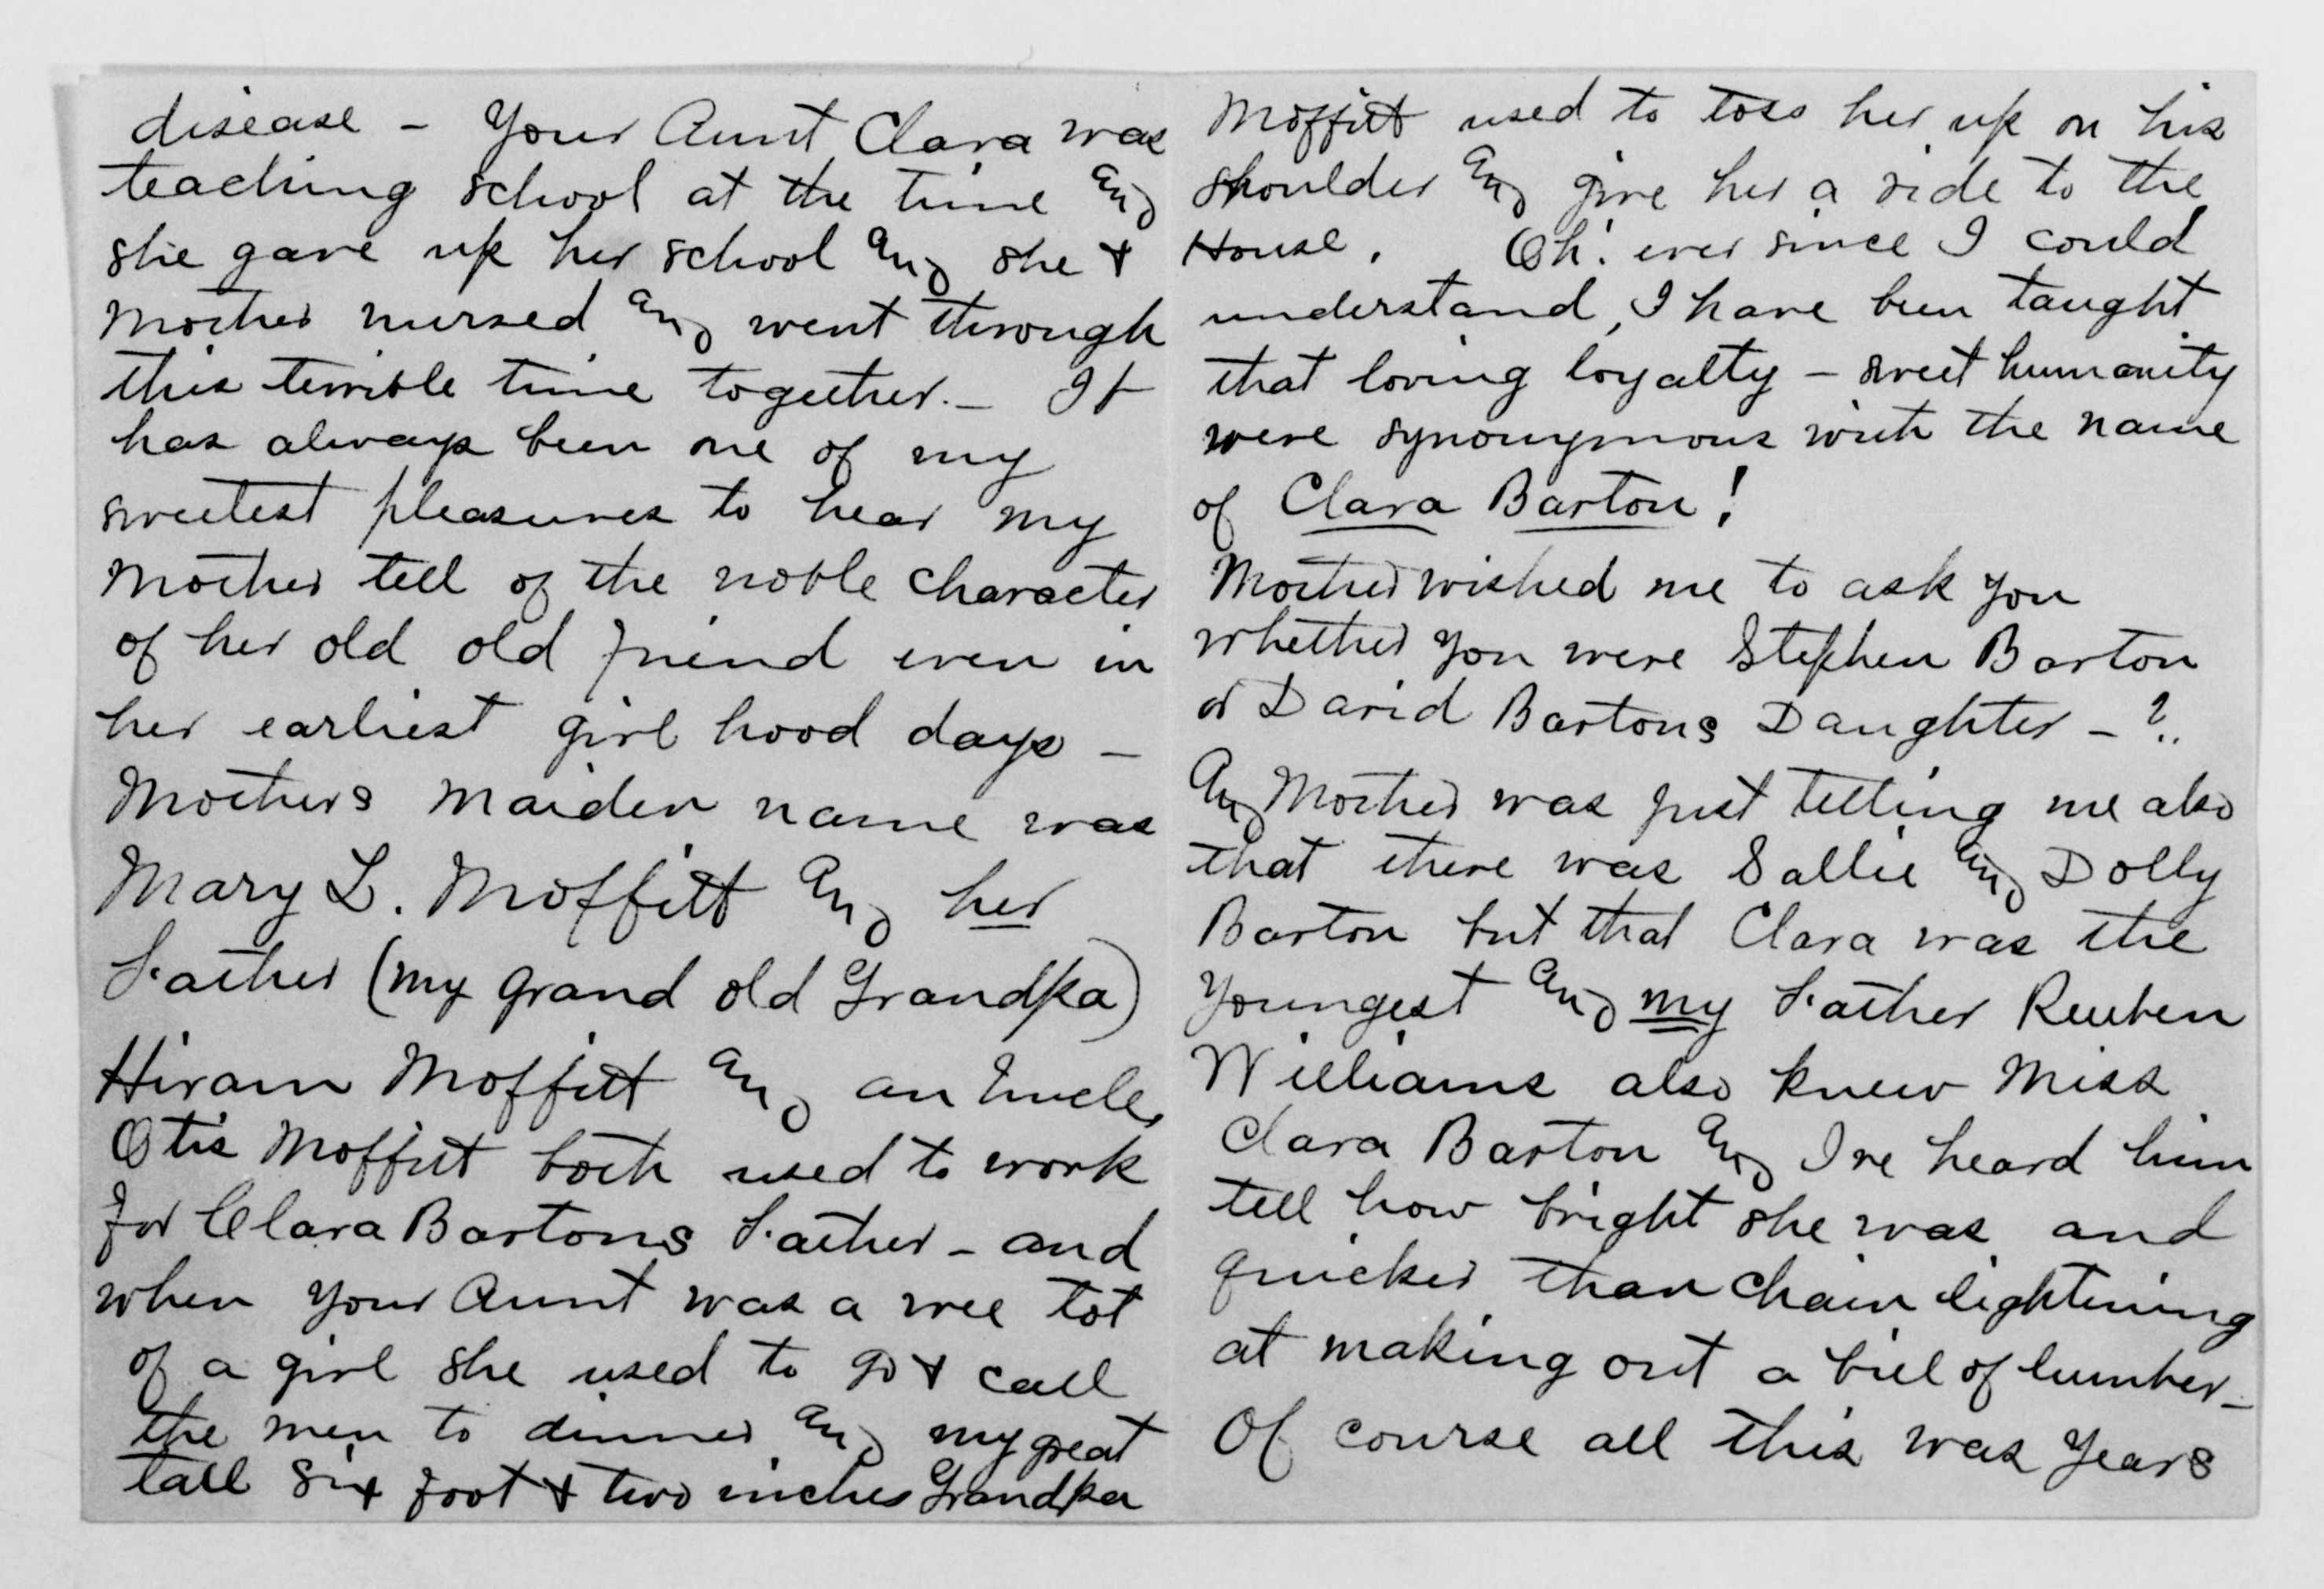 disease - Your Aunt Clara was
teaching school at the time and
she gave up her school and she &
Mother nursed and went through
this terrible time together. - It
has always been one of my
sweetest pleasures to hear my
Mother tell of the noble character
of her old old friend even in
her earliest girl hood days -
Mothers maiden name was
Mary L. Moffitt and her
Father (my grand old Grandpa)
Hiram Moffitt and an Uncle,
Otis Moffitt both used to work
for Clara Bartons Father - and
when your Aunt was a wee tot
of a girl she used to go & call
the men to dinner and my great
tall six foot & two inches Grandpa
Moffitt used to toss her up on his
shoulder and give her a ride to the
House. Oh! ever since I could
understand, I have been taught
that loving loyalty - sweet humanity
were synonymous with the name
of Clara Barton!
Mother wished me to ask you
whether you were Stephen Barton
or David Bartons Daughter - ?
And Mother was just telling me also
that there was Sallie and Dolly
Barton but that Clara was the
youngest and my Father Reuben
Williams also knew Miss
Clara Barton and Ive heard him
tell how bright she was and
quicker than chain lightening
at making out a bill of lumber -
Of course all this was years